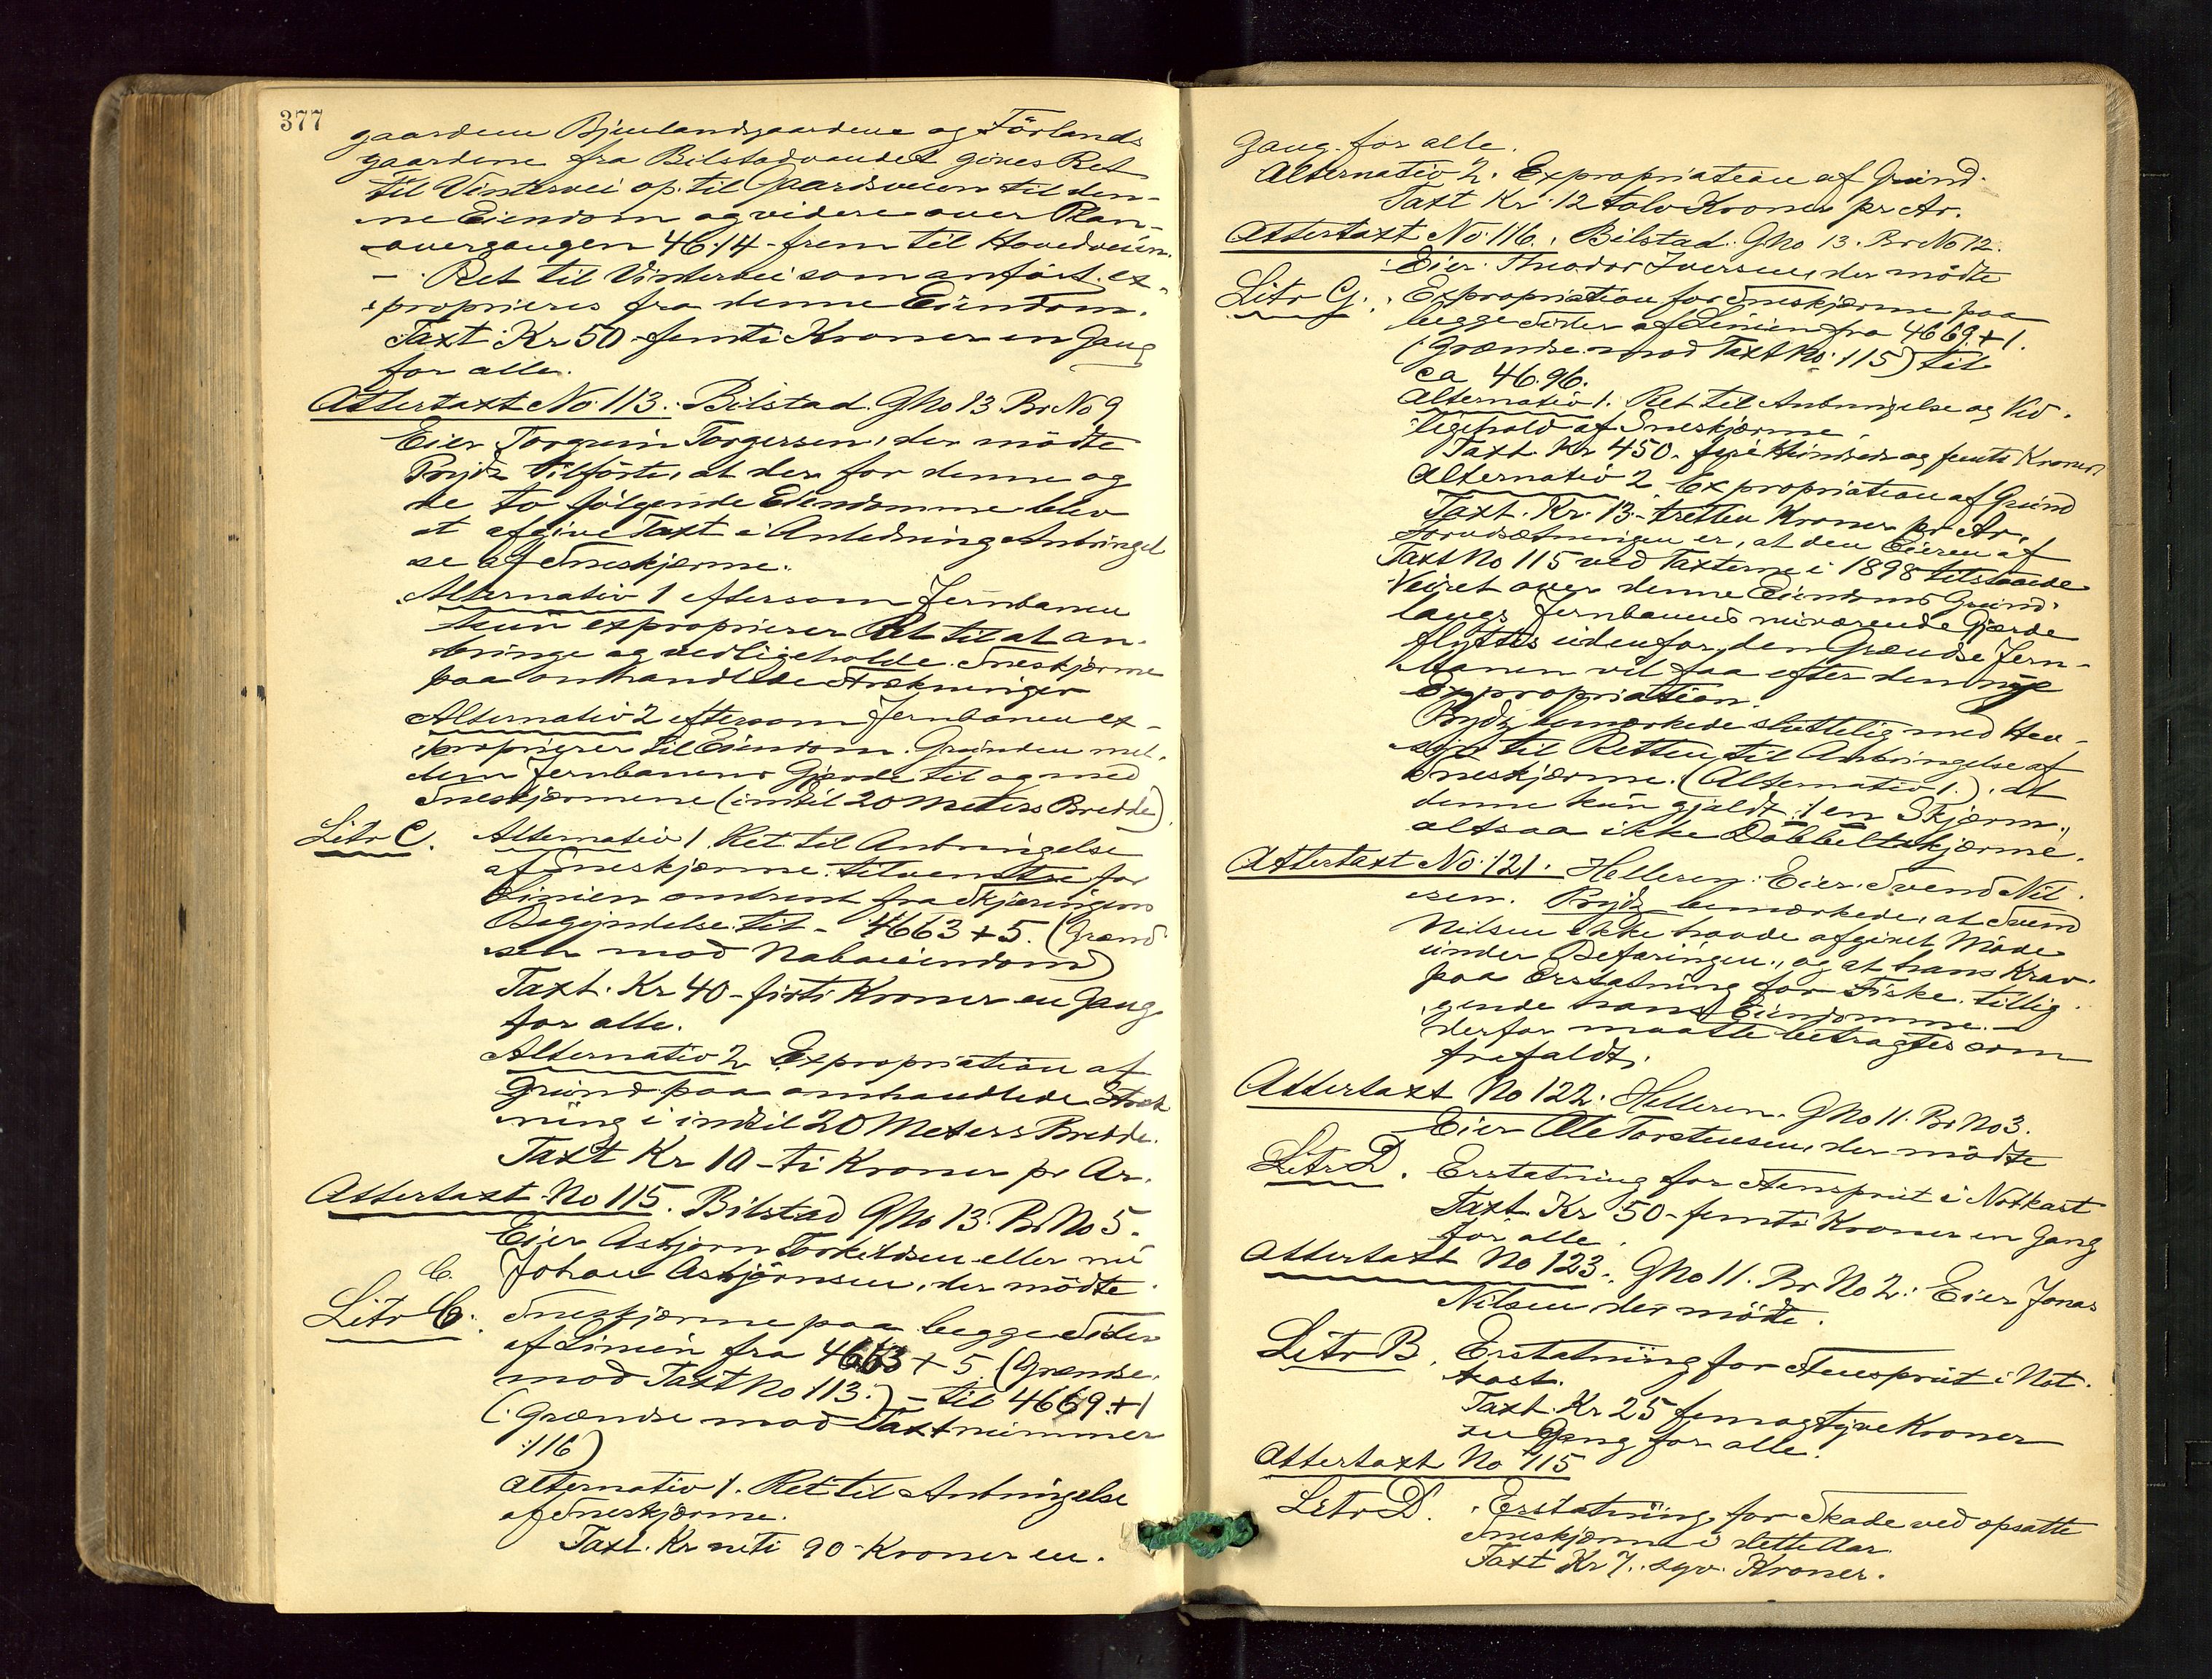 377
gaardene Bjuelandsgaardene og Förlands
gaardene fra Bilstadvandet gives Ret
til Vintervei op til Gaardsveien til den-
ne Eiendom og videre over Plan-
overgangen 4614 - frem til Hovedveien.
- Ret til Vintervei som anfört ex-
proprieres fra denne Eiendom.
Taxt Kr 50 - femti Kroner en Gang
for alle.
Attertaxt No 113. Bilstad. Gno 13 Br No 9
Eier Torgrim Torgersen, der mödte
Brydz tilförte, at der for denne og
de to fölgende Eiendomme blev
at afgive Taxt i Anledning Anbringel
se af Sneskjærme.
Alternativ 1 eftersom Jernbanen
kun exproprierer Ret til at an-
bringe og vedligeholde Sneskjærme
paa omhandlede Strækninger
Alternativ 2 eftersom Jernbanen ex-
proprierer til Eiendom Grunden mel-
lem Jernbanens Gjerde til og med
Sneskjærmene (indtil 20 Meters Bredde).
Litr C. Alternativ 1 Ret til Anbringelse
af Sneskjærme tilvenstre for
Linien omtrent fra Skjæringens
Begyndelse til - 4663 + 5. (Grænd
sen mod Naboeiendom)
Taxt. Kr 40 - firti Kroner en Gang
for alle.
Alternativ 2 Expropriation af
Grund paa omhandlede Stræk
ning i indtil 20 Meters Bredde.
Taxt Kr 10 - ti Kroner pr Ar.
Attertaxt No 115. Bilstad Gno 13. Br No 5.
Eier Asbjörn Torkildsen eller nu
C. Johan Asbjörnsen, der mödte.
Litr C. Sneskjærme paa begge Sider
af Linien fra 4663 + 5 (Grændse
mod Taxt No 113.) - til 4669 + 1
(Grændse mod Taxtnummer
116)
Alternativ 1. Ret til Anbringelse
af Sneskjærme.
Taxt. Kr niti 90 - Kroner en
Gang for alle.
Alternativ 2. Expropriation af Grund.
Taxt Kr. 12 tolv Kroner pr Ar.
Attertaxt No 116. Bilstad. Gno 13. Br No 12.
Eier Theodor Iversen, der mödte
Litr G. Expropriation for Sneskjærme paa
begge Sider af Linien fra 4669 + 1.
(Grændse mod Taxt No. 115) til
ca 46.96.
Alternativ 1. Ret til Anbringelse og Ved-
ligehold af Sneskjærme.
Taxt Kr 450. fire Hundrede og femti Kroner
Alternativ 2 Expropriation af Grund
Taxt. Kr. 13 - tretten Kroner pr Ar.
Forudsætningen er, at den Eieren af
Taxt No 115 ved Taxterne i 1898 tilstaaede
Veiret over denne Eiendoms Grund
langs Jernbanens nuværende Gjærde
flyttes udenfor den Grændse Jern-
banen vil faa efter den nye
Expropriation.
Brydz bemærkede sluttelig med Hen-
syn til Retten til Anbringelse af
Sneskjærme. (Alternativ 1.), at
denne kun gjaldt 1 en Skjærm,
altsaa ikke Dobbeltskjærme.
Attertaxt No. 121. Helleren. Eier Svend Nil-
sen. Brydz bemærkede, at Svend
Nilsen ikke havde afgivet Möde
under Befaringen, og at hans Krav
paa Erstatning for Fiske tillig-
gende hans Eiendomme
derfor maatte betragtes som
frafaldt.
Attertaxt No 122. Helleren. Gno 11. Br No 3.
Eier Ole Torstensen, der mödte
Litr D. Erstatning for Stensprut i Notkast
Taxt Kr 50 - femti Kroner en Gang
for alle.
Attertaxt No 123. Gno 11. Br No 2. Eier Jonas
Nilsen der mödte.
Litr B. Erstatning for Stensprut i Not-
kast.
Taxt Kr 25 femogtyve Kroner
en Gang for alle.
Attertaxt No 115
Litr D. Erstatning for Skade ved opsatte
Sneskjærme i dette Aar
Taxt Kr 7. syv. Kroner.